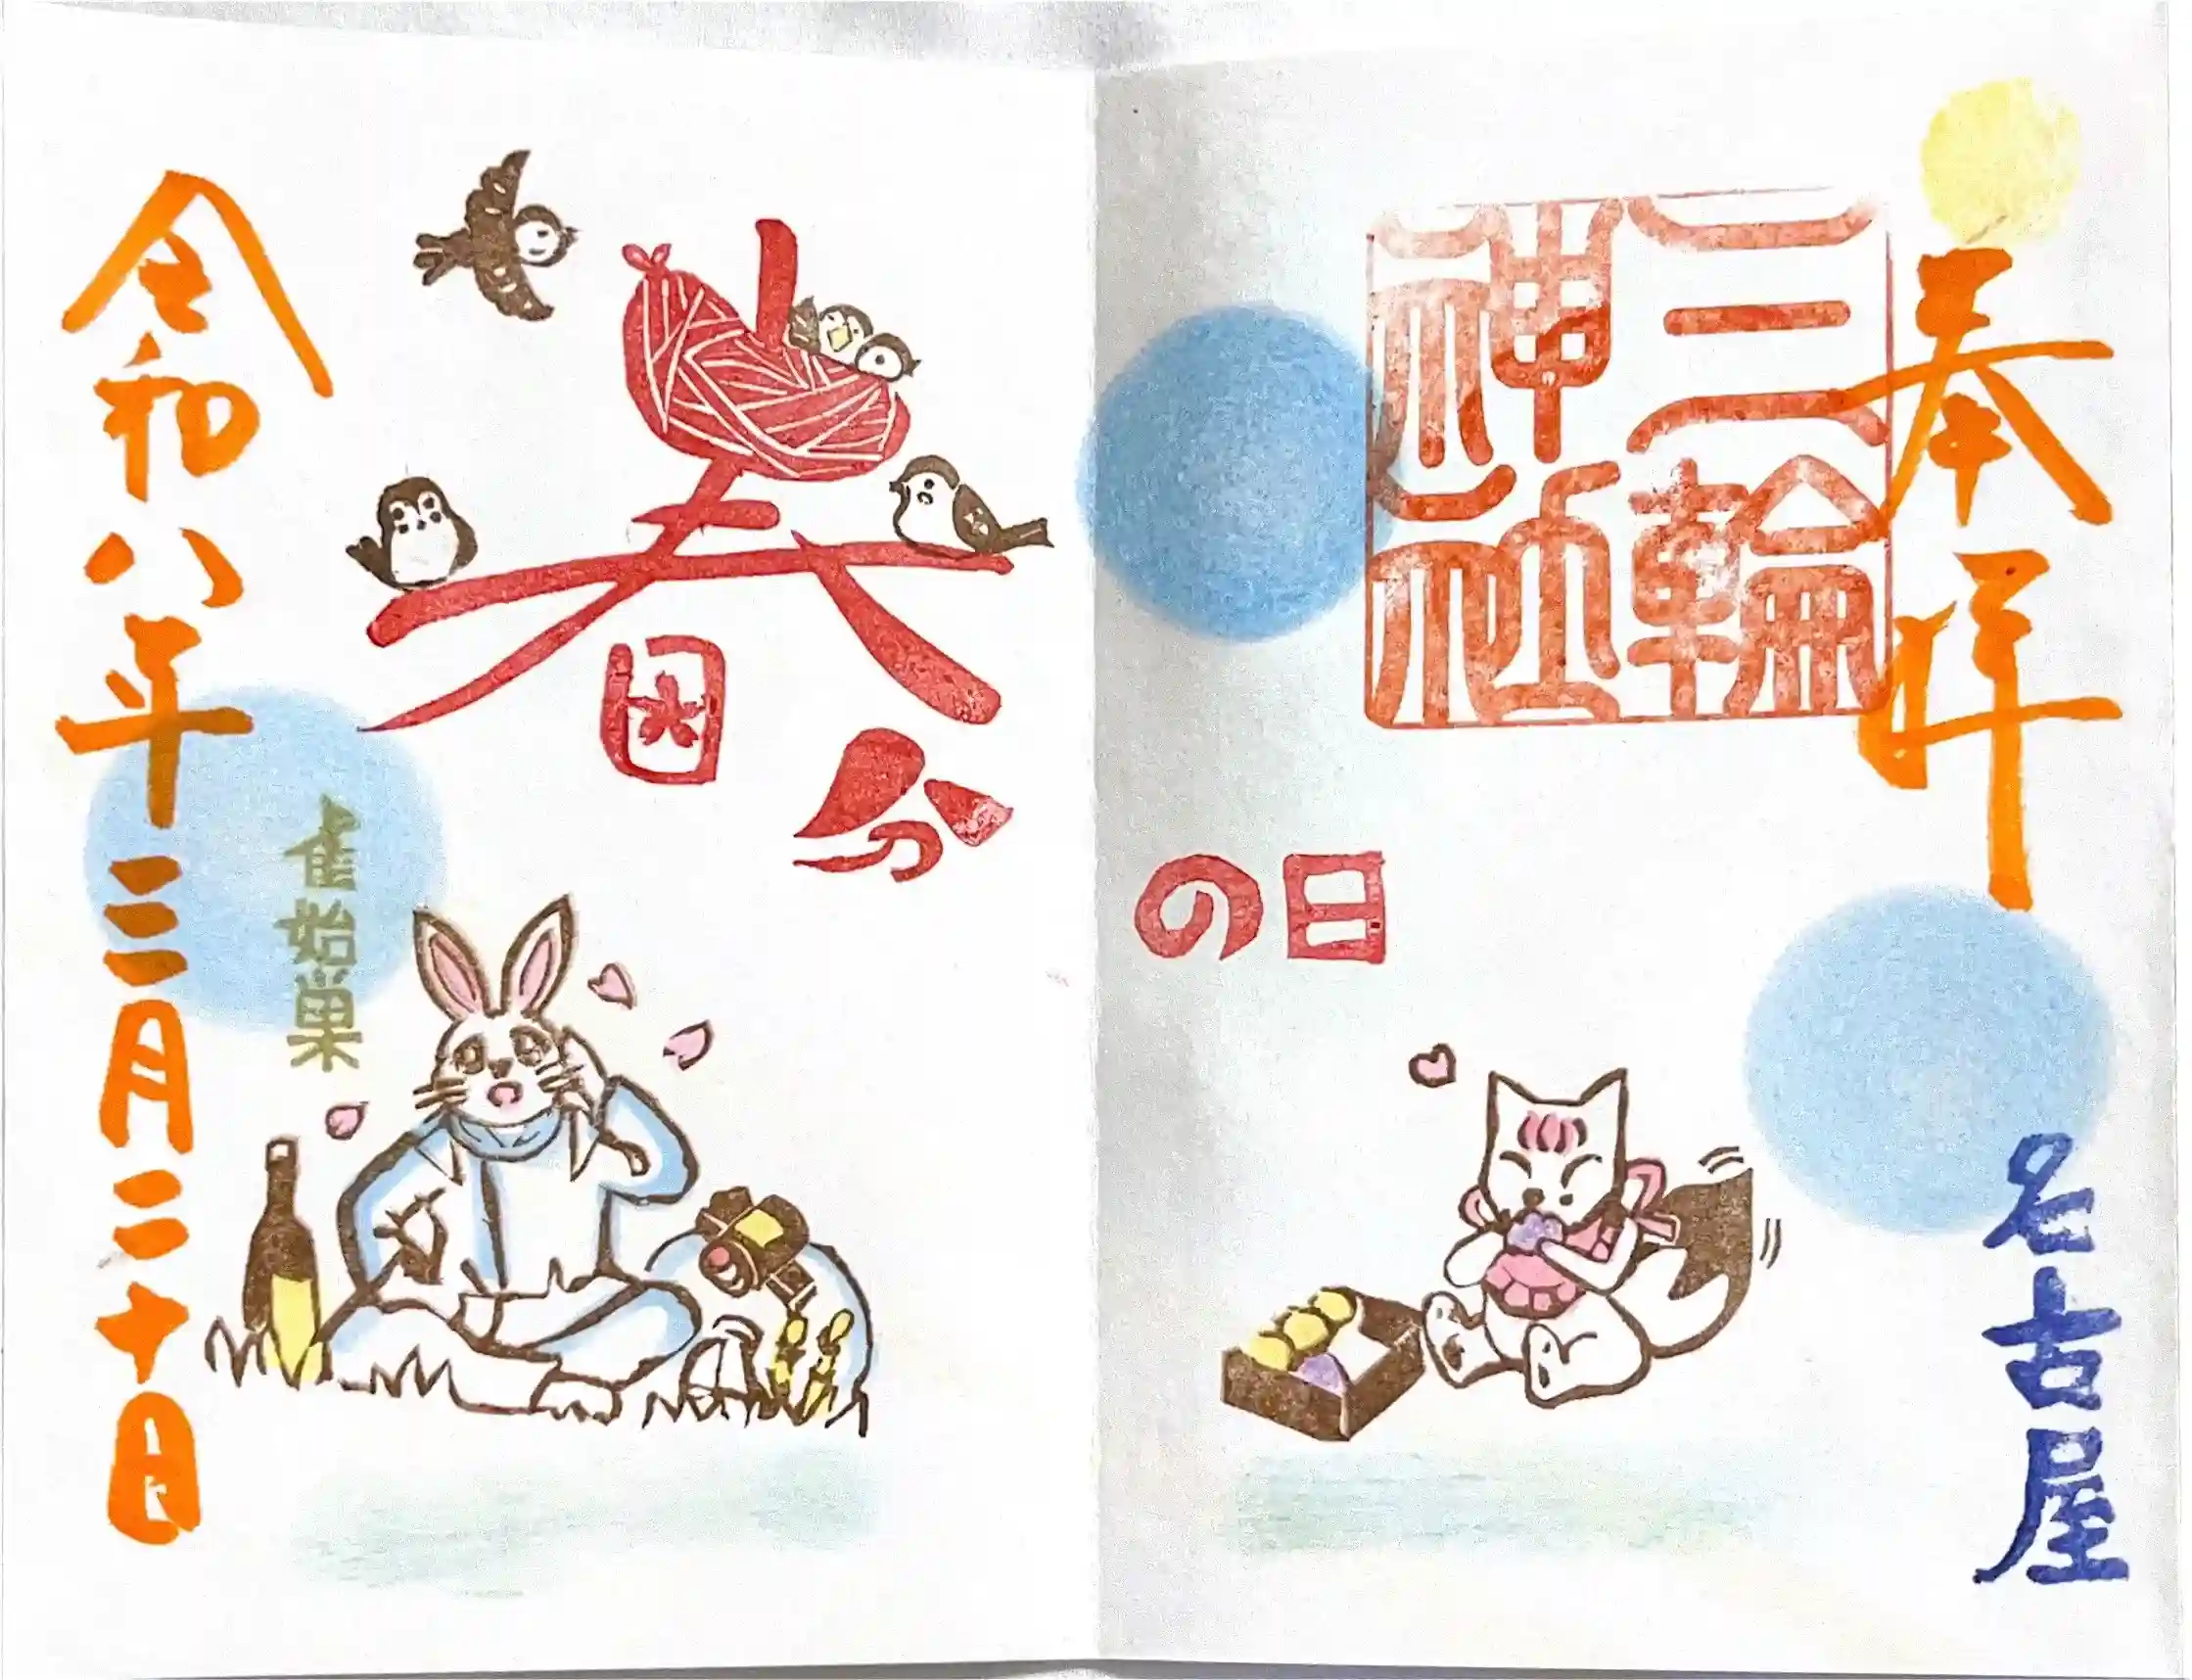 奉拝
三輪
神社
名古屋
春分
の日
雀始巣
令和八年三月二十日